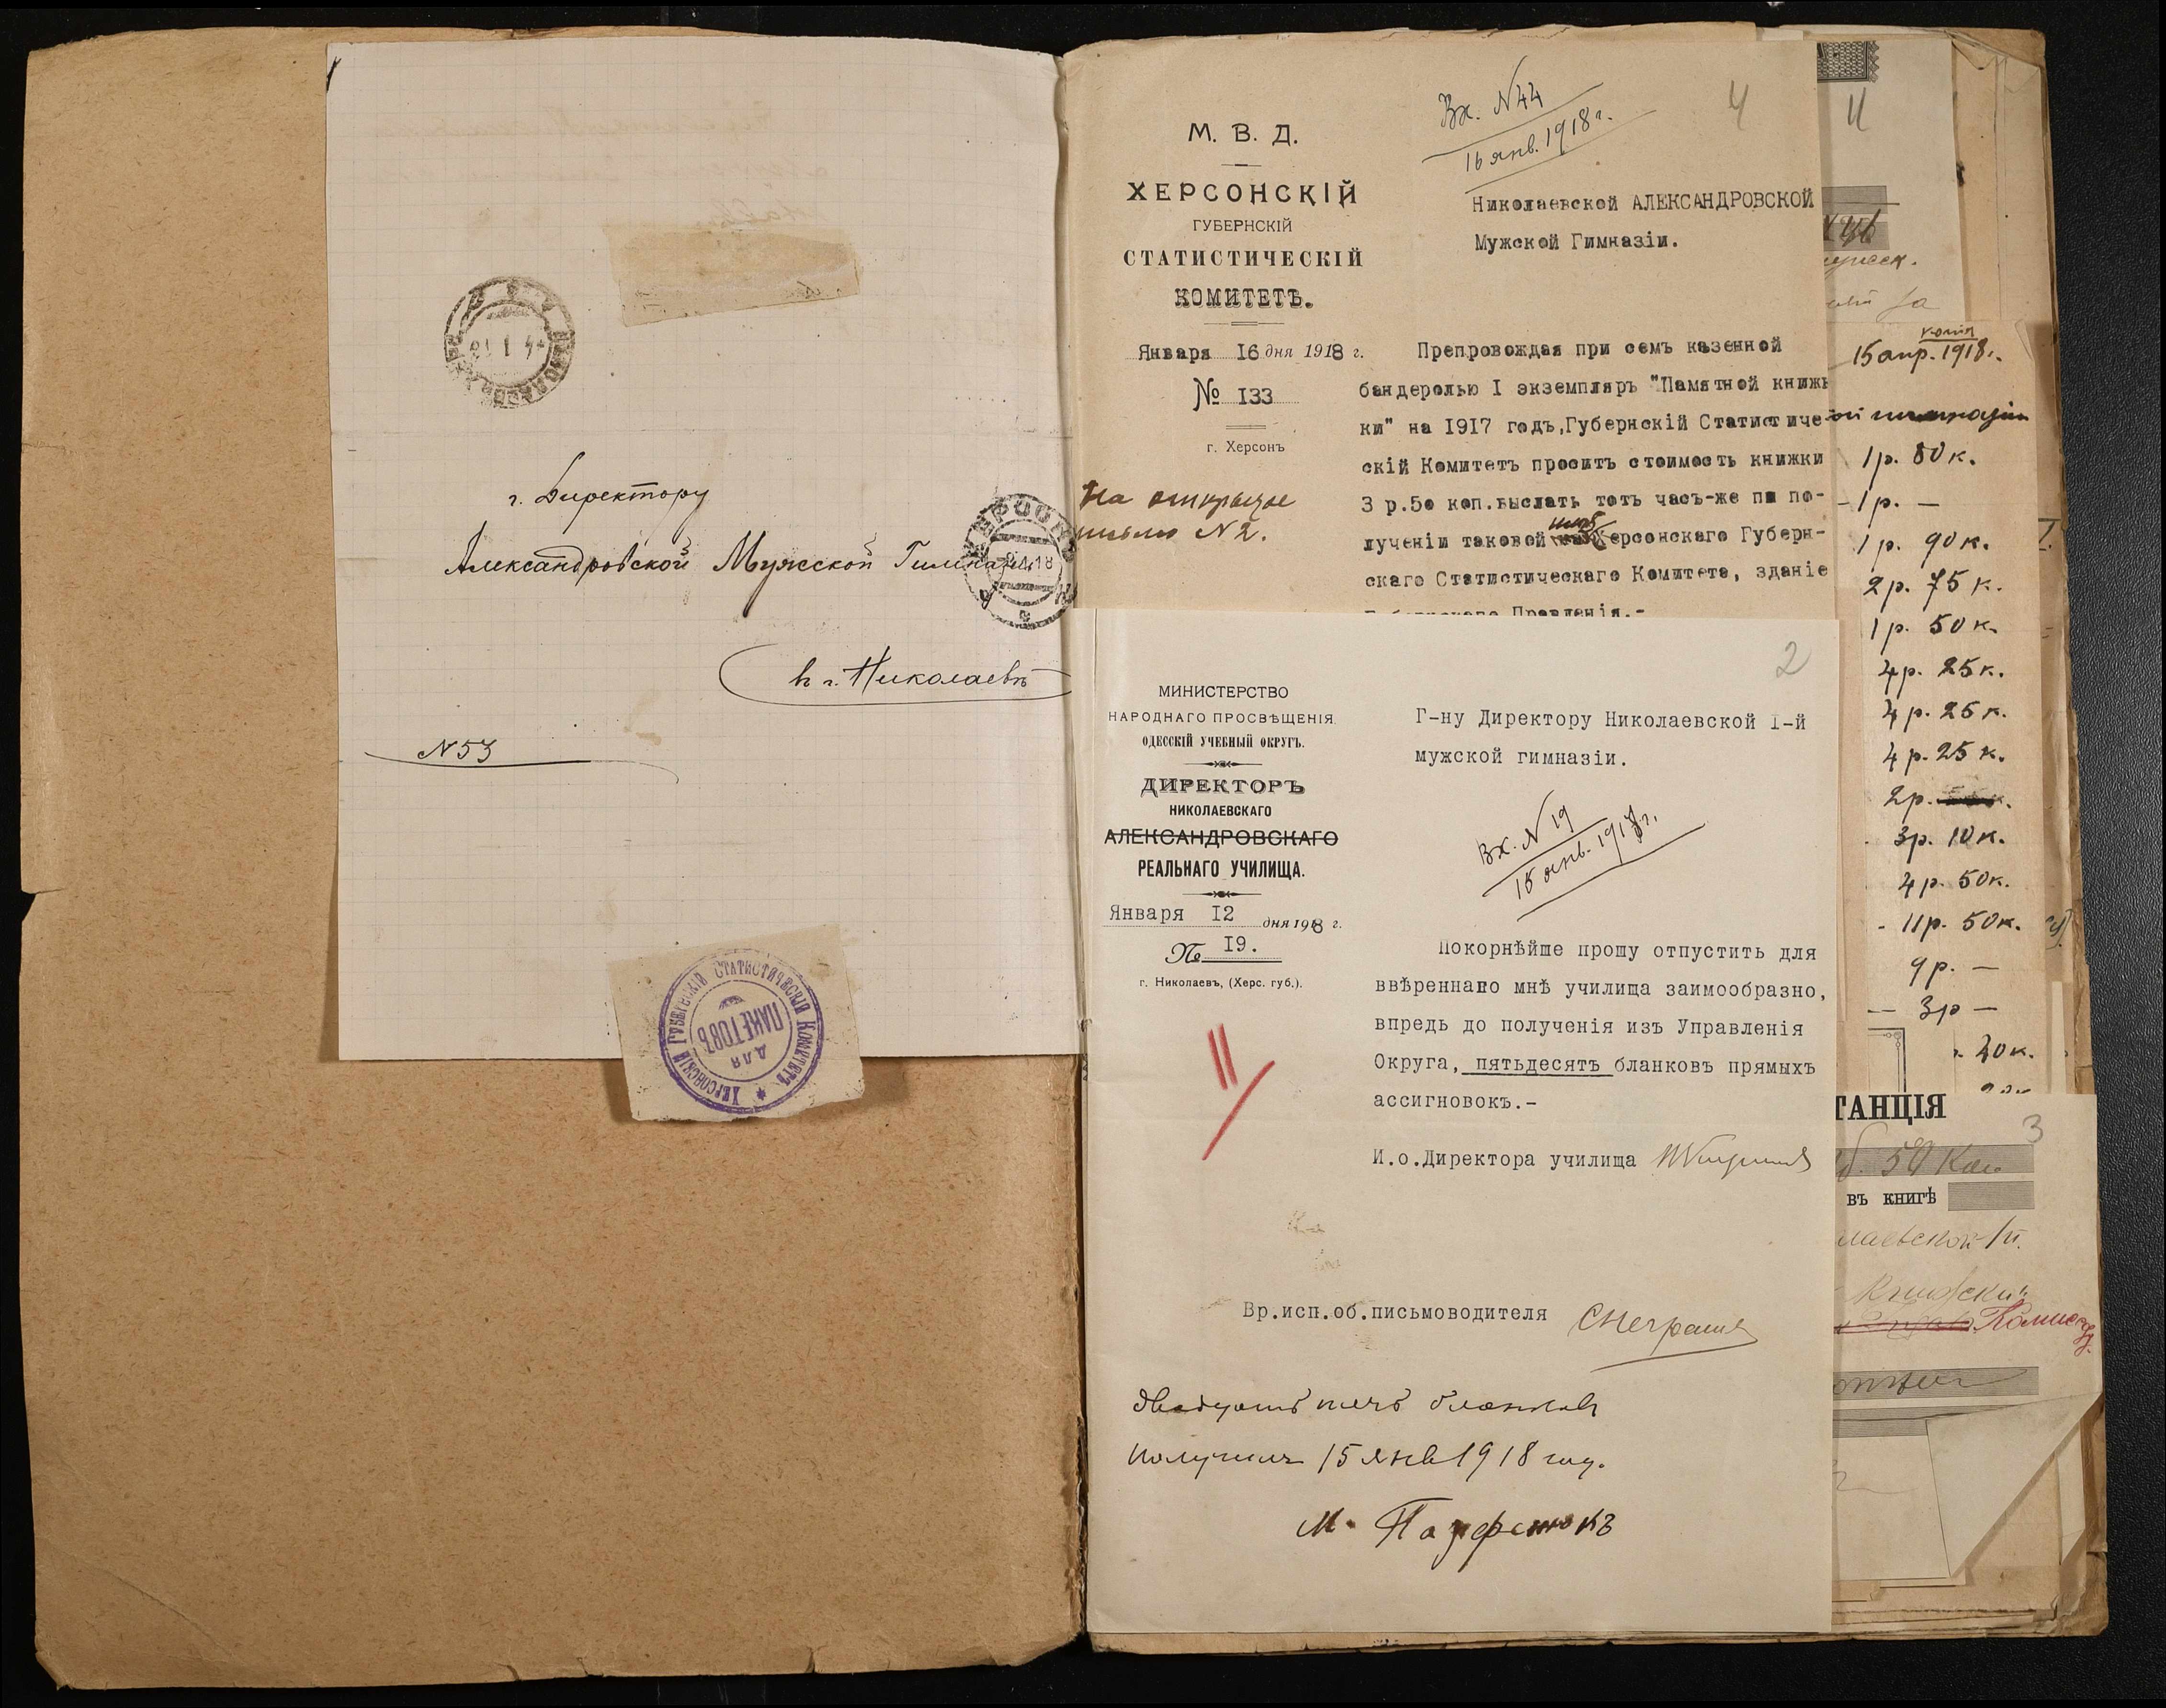 г. Директору
Александровской Мужской Гимназіи
въ г. Николаевъ
N 53
ХЕРСОНСКІЙ ГУБЕРНСКІЙ СТАТИСТИЧЕСКІЙ КОМИТЕТЪ
ДЛЯ
ПАКЕТОВЪ
4
Вх. N 44
16 янв. 1918 г.
М. В. Д.
ХЕРСОНСКІЙ
ГУБЕРНСКІЙ
СТАТИСТИЧЕСКІЙ
КОМИТЕТЪ.
Января 16 дня 1918 г.
№ 133
г. Херсонъ
На открытое
письмо N 2.
Николаевской АЛЕКСАНДРОВСКОЙ
Мужской Гимназіи.
Препровождая при семъ казенной
бандеролью I экземпляръ "Памятной книж
ки" на 1917 годъ,Губернскій Статистиче-
скій Комитетъ проситъ стоимость книжки
3 р.50 коп.выслать тотъ часъ-же по по-
лученіи таковой Херсонскаго Губерн-
скаго Статистическаго Комитета, зданіе
Губернскаго Правленія.-
2
МИНИСТЕРСТВО
НАРОДНАГО ПРОСВѢЩЕНІЯ.
ОДЕССКІЙ УЧЕБНЫЙ ОКРУГЪ.
ДИРЕКТОРЪ
НИКОЛАЕВСКАГО
АЛЕКСАНДРОВСКАГО
РЕАЛЬНАГО УЧИЛИЩА.
Января 12 дня 1918 г.
№ 19.
г. Николаевъ, (Херс. губ.).
Г-ну Директору Николаевской I-й
мужской гимназіи.
Вх. N 19
15 янв. 1918 г.
Покорнѣйше прошу отпустить для
ввѣреннаго мнѣ училища заимообразно,
впредь до полученія изъ Управленія
Округа, пятьдесятъ бланковъ прямыхъ
ассигновокъ.-
И.о.Директора училища
Вр.исп.об.письмоводителя
двадцать пять бланков
получилъ 15 янв 1918 году.
11
копія
15 апр. 1918 г.
1 р. 80 к.
- 1 р. -
1 р. 90 к.
2 р. 75 к.
1 р. 50 к.
4 р. 25 к.
4 р. 25 к.
4 р. 25 к.
2 р.
3 р. 10 к.
4 р. 50 к.
- 11 р. 50 к.
9 р. -
- 3 р -
40 к.
ТАНЦІЯ
3
50 Коп
въ книгѣ